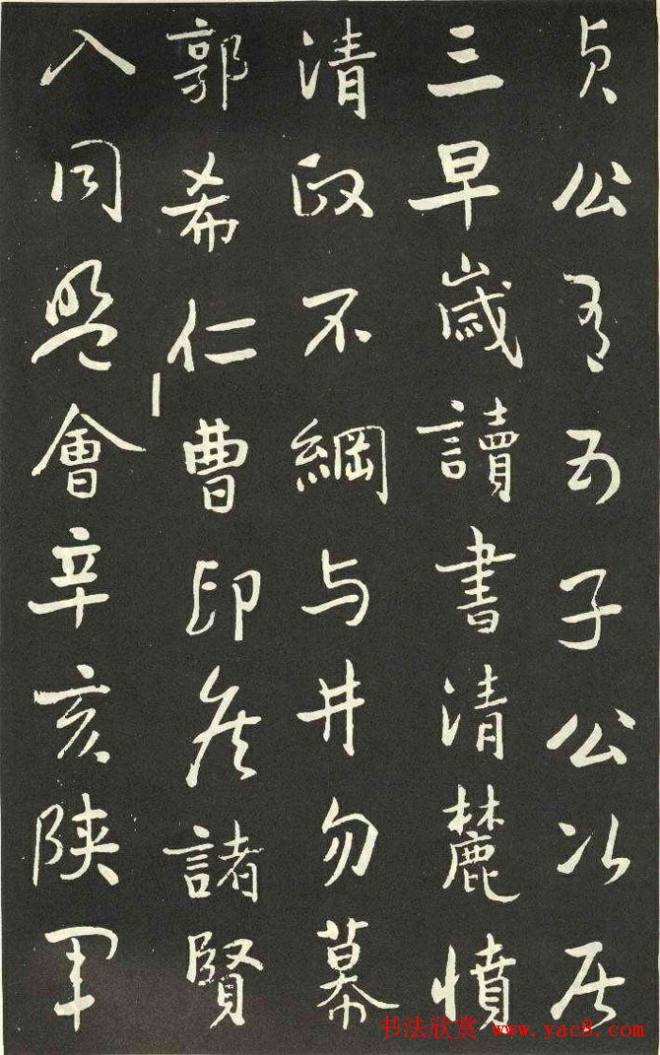 贞公有五子公次居
三早歲讀書清麓憤
清政不綱与井勿幕
郭希仁曹印侯諸賢
入同盟會辛亥陕军
书法欣赏 www.yac8.com